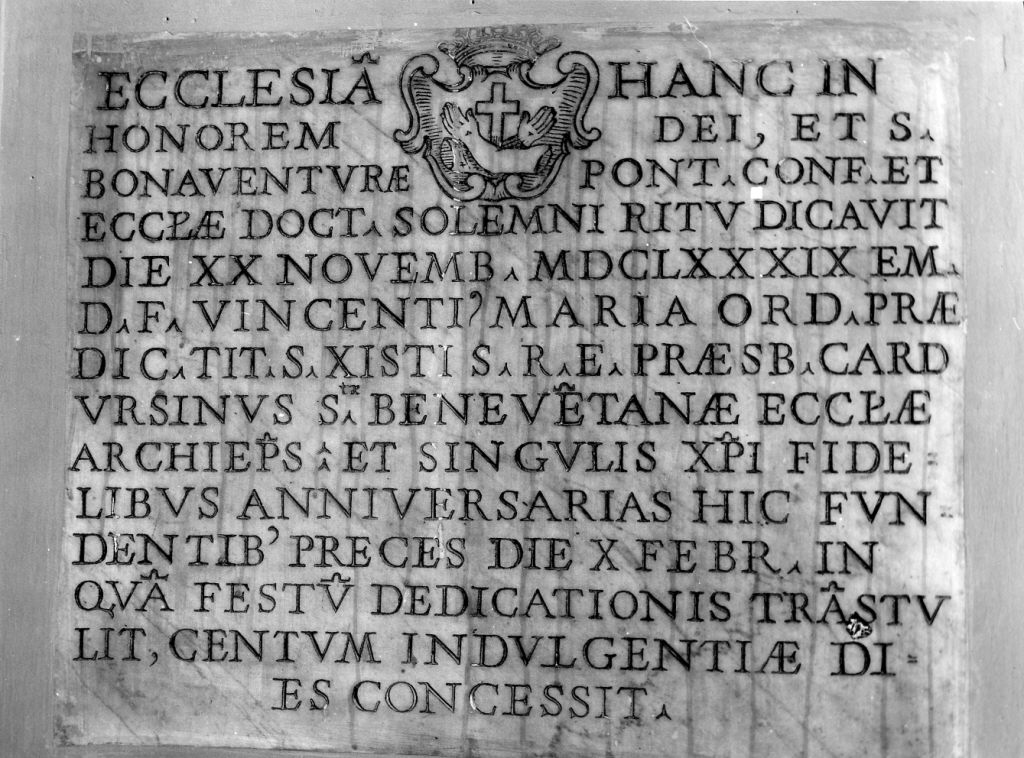 ECCLESIÃ HANC IN
HONOREM DEI, ET S.
BONAVENTVRÆ PONT. CONF. ET
ECCŁÆ DOCT. SOLEMNI RITV DICAVIT
DIE XX NOVEMB. MDCLXXXIX EM.
D. F. VINCENTI' MARIA ORD. PRÆ
DIC. TIT. S. XISTI S. R. E. PRÆSB. CARD
VRSINVS S.tæ BENEVẼTANÆ ECCŁÆ
ARCHIEP̃S : ET SINGVLIS XP̃I FIDE=
LIBVS ANNIVERSARIAS HIC FVN=
DENTIB' PRECES DIE X FEBR. IN
QVÃ FESTṼ DEDICATIONIS TRÃSTV
LIT, CENTVM INDVLGENTIÆ DI=
ES CONCESSIT.